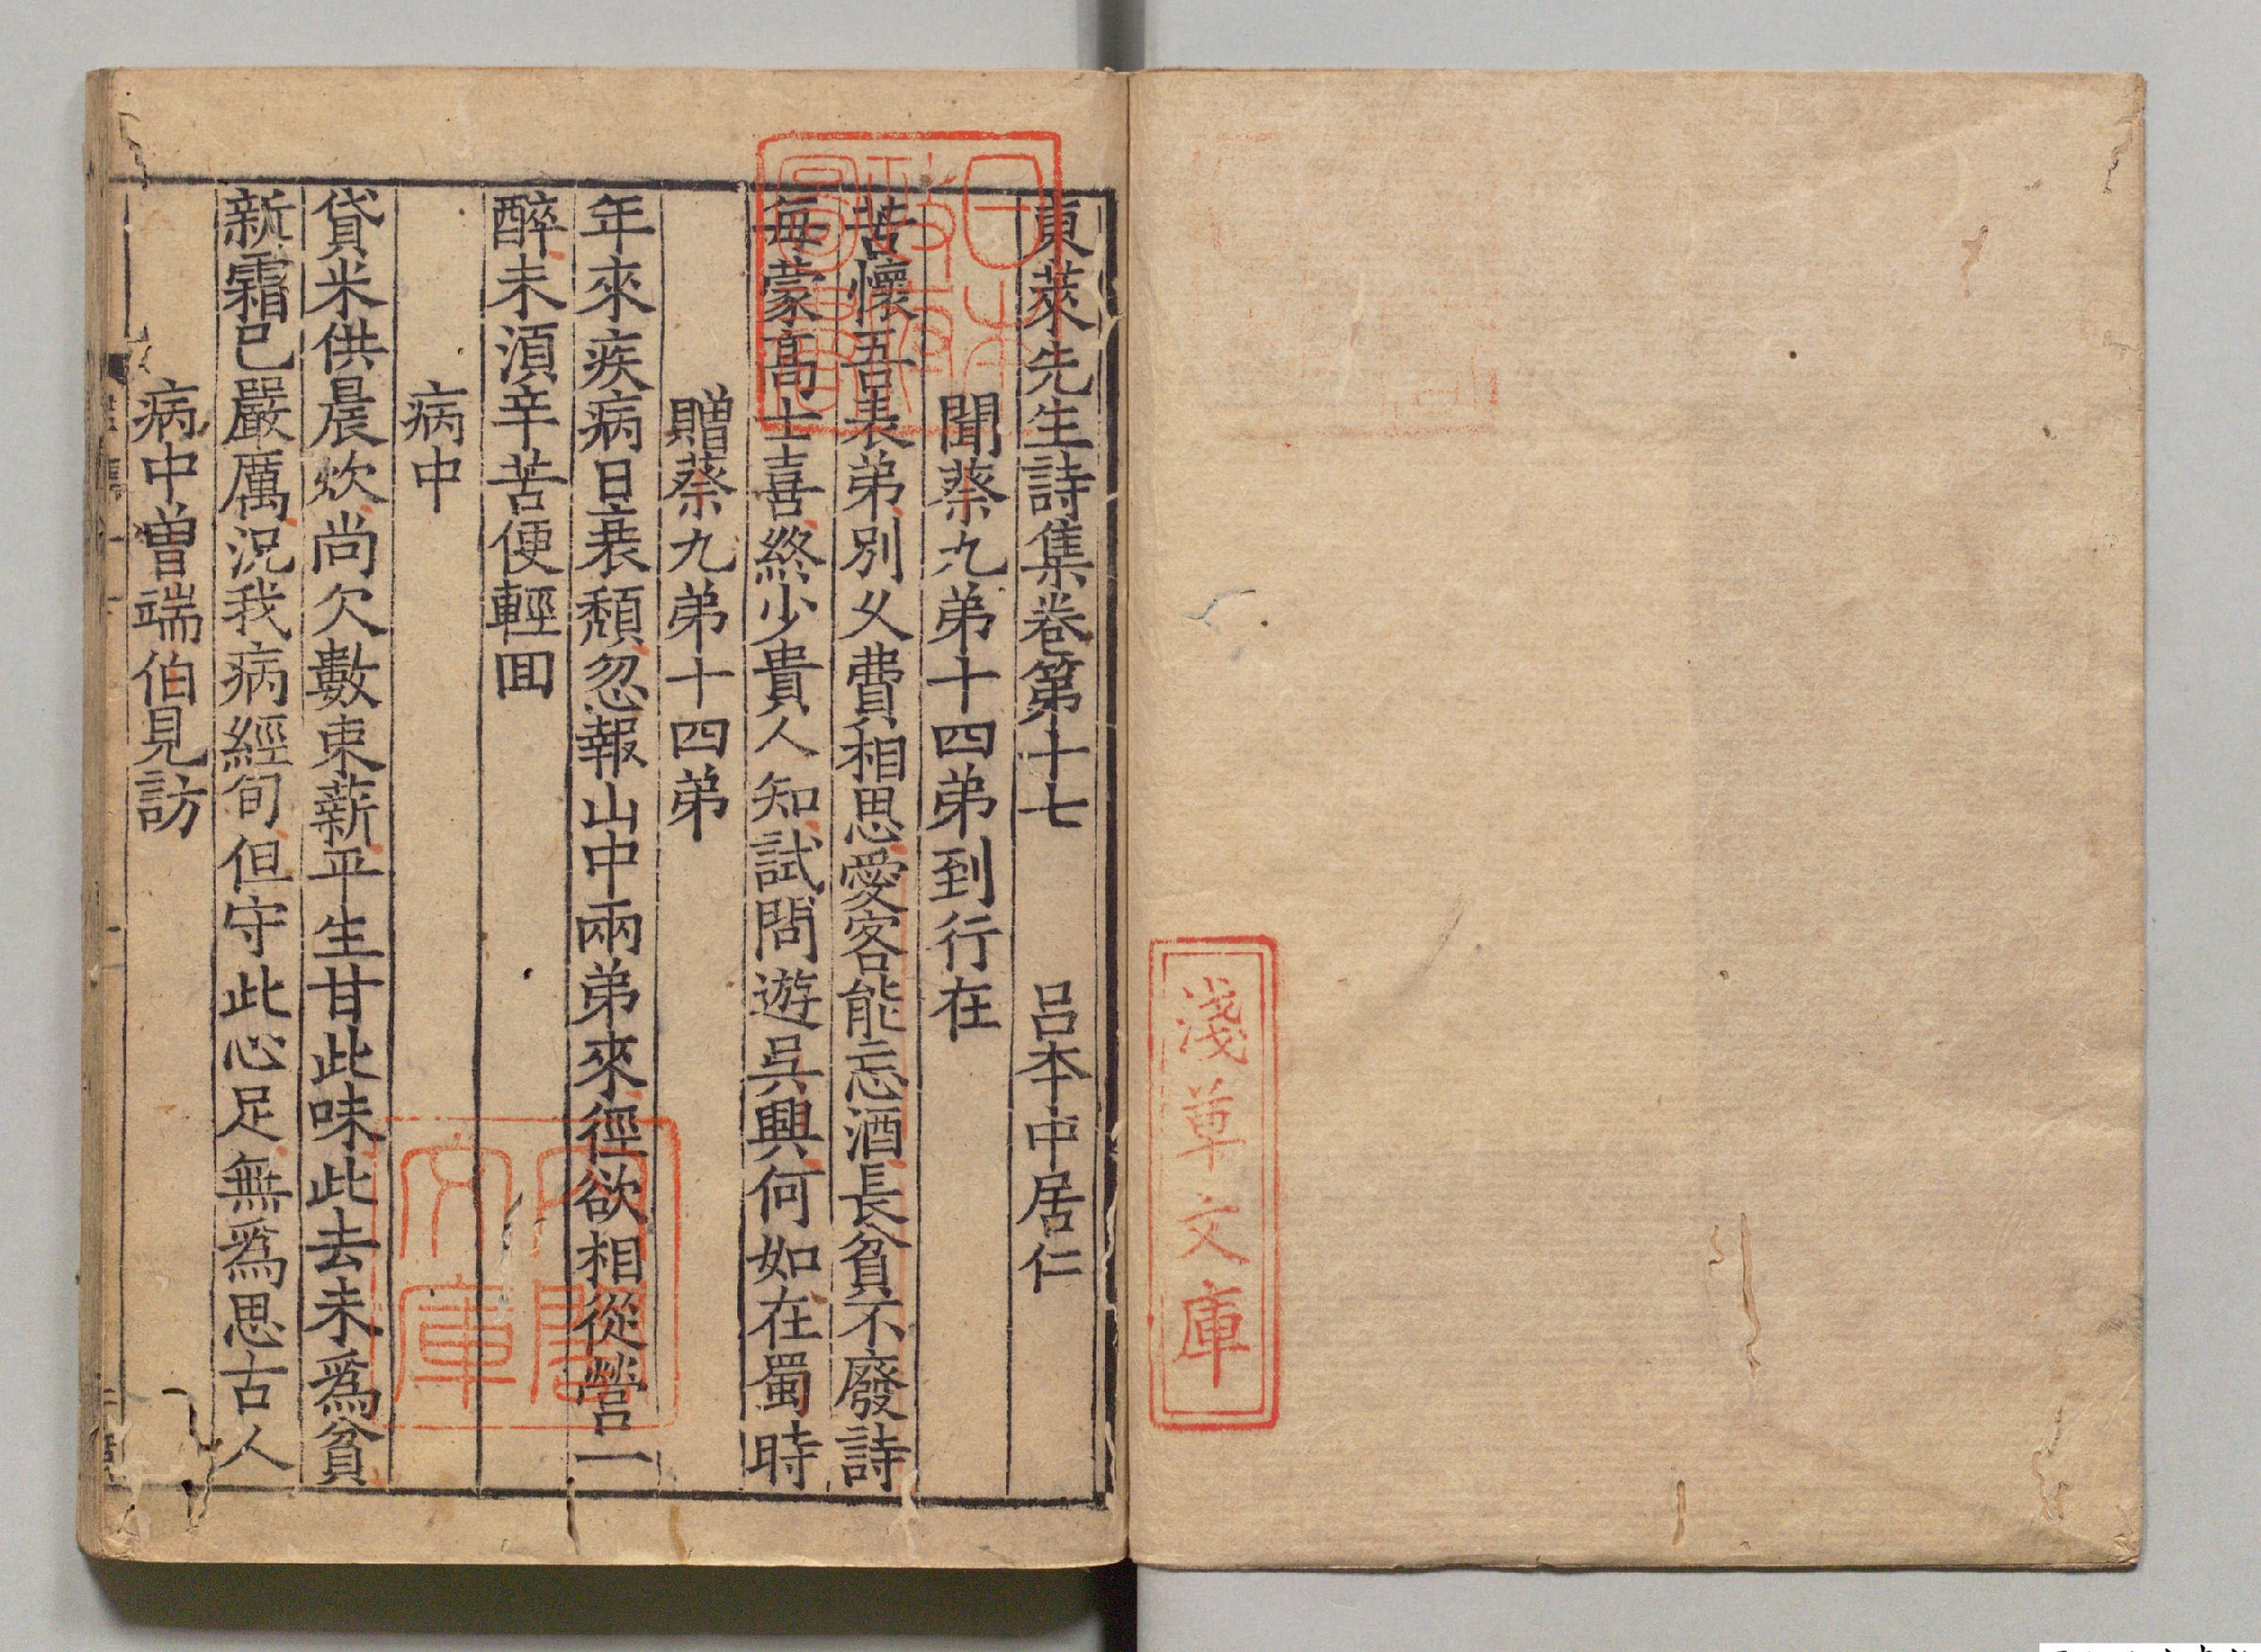 東萊先生詩集卷第十七 呂本中居仁
聞蔡九弟十四弟到行在
苦懷吾表弟別乆費相思愛客能忘酒長貧不廢詩
每蒙高士喜終少貴人知試問遊吳興何如在蜀時
贈蔡九弟十四弟
年來疾病日衰頹忽報山中兩弟來徑欲相從營一
醉未須辛苦便輕回
病中
貸米供晨炊尚欠數束薪平生甘此味此去未爲貧
新霜已嚴厲況我病經旬但守此心足無爲思古人
病中曾端伯見訪
淺草文庫
日本政府圖書
內閣文庫